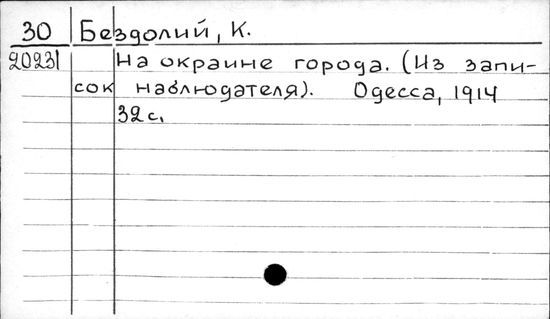 30 Бездолий, К.
20231 На окраине города. (Из запи-
сок наблюдателя). Одесса, 1914
32 с.